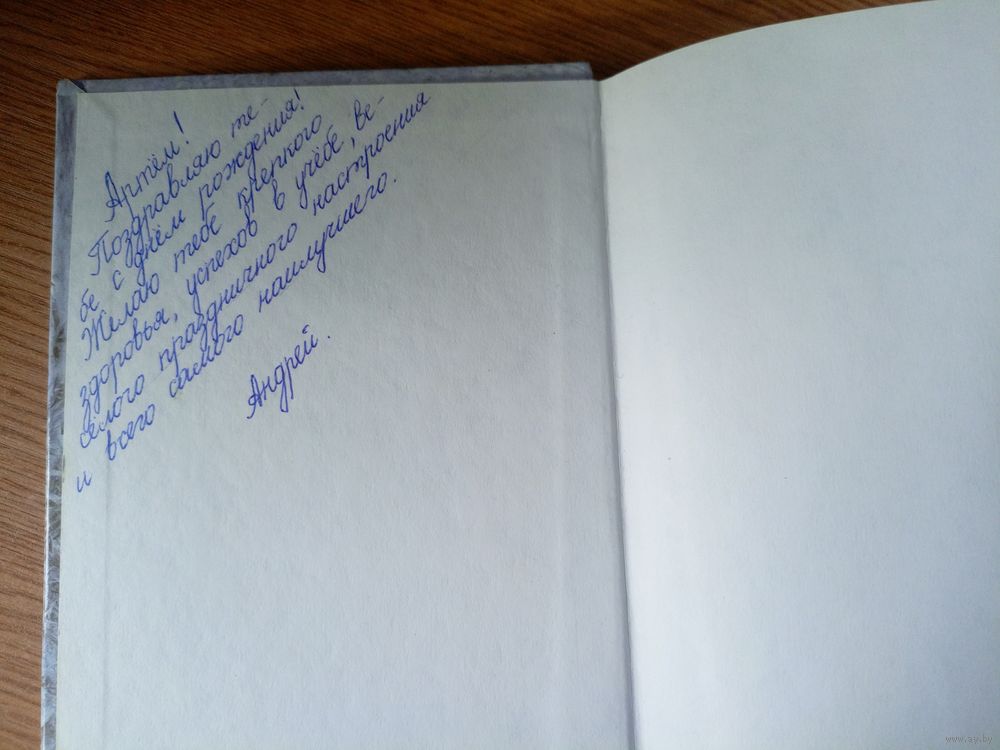 Артём!
Поздравляю те-
бе с днём рождения!
Желаю тебе крепкого
здоровья, успехов в учёбе, ве-
сёлого праздничного настроения
и всего самого наилучшего.
Андрей.
www.ay.by